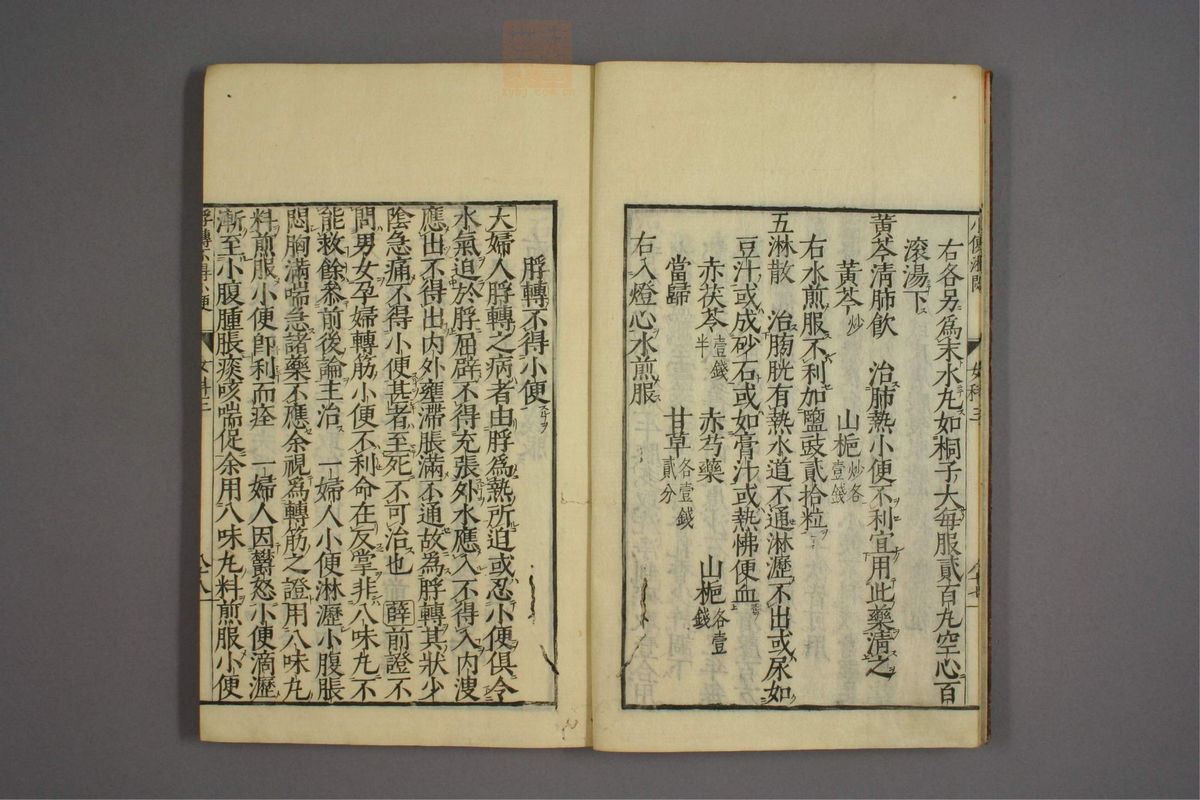 右各另爲末水丸如桐子大每服貳百丸空心百
滾湯下
黃芩淸肺飮　治肺熱小便不利宜用此藥淸之
黃芩炒　山梔炒各壹錢
右水煎服不利加鹽豉貳拾粒
五淋散　治膀胱有熱水道不通淋瀝不出或尿如
豆汁或成砂石或如膏汁或熱怫便血
赤茯苓壹錢半　赤芍藥　山梔各壹錢
當歸　甘草各壹錢貳分
右入燈心水煎服
脬轉不得小便
大婦人脬轉之病者由脬爲熱所迫或忍小便俱令
水氣迫於脬屈辟不得充張外水應入不得入内溲
應出不得出内外壅滯脹滿不通故為脬轉其狀少
陰急痛不得小便甚者至死不可治也　薛前證不
問男女孕婦轉筋小便不利命在反掌非八味丸不
能救餘叅前後論主治　一婦人小便淋瀝小腹脹
悶胸滿喘急諸藥不應余視爲轉筋之證用八味丸
料煎服小便卽利而痊　一婦人因鬱怒小便滴瀝
漸至小腹腫脹痰咳喘促余用八味丸料煎服小便